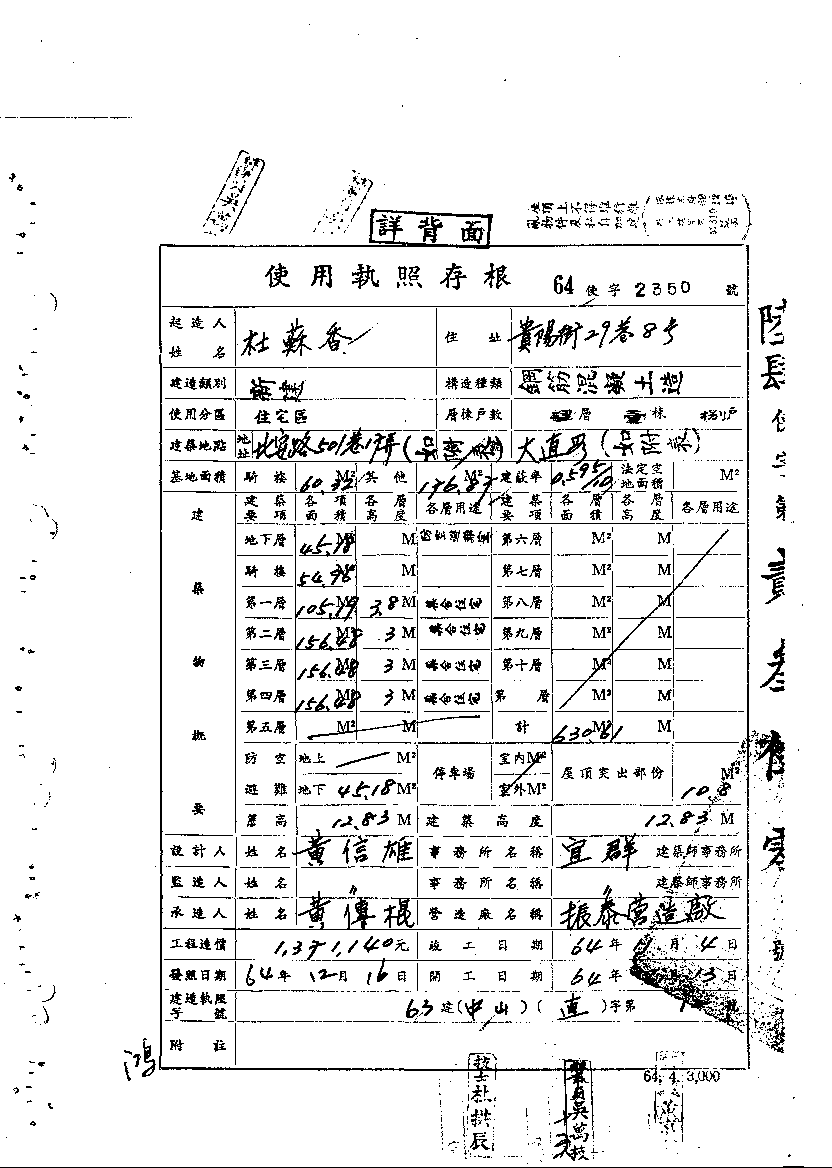 詳背面
使用執照存根 64使字2350號
起造人姓名 杜蘇香 住址 貴陽街29巷8号
建造類別 新建 構造種類 鋼筋混凝土造
使用分區 住宅區 層棟戶數 層 棟 戶
建築地點 地址 北安路501巷17弄 大直段
基地面積 騎樓 60.32 M² 其他 176.87 M² 建蔽率 0.595/10 法定空地面積 M²
建築物概要
建築要項 各項面積 各層高度 各層用途 建築要項 各層面積 各層高度 各層用途
地下層 45.18 M² M 第六層 M² M
騎樓 54.98 M² M 第七層 M² M
第一層 105.19 M² 3.8 M 集合住宅 第八層 M² M
第二層 156.48 M² 3 M 集合住宅 第九層 M² M
第三層 156.48 M² 3 M 集合住宅 第十層 M² M
第四層 156.48 M² 3 M 集合住宅 第 層 M² M
第五層 M² M 計 630.61 M²
防空避難 地上 M² 停車場 室內M² 屋頂突出部份 10.8 M²
地下 45.18 M² 室外M²
簷高 12.83 M 建築高度 12.83 M
設計人 姓名 黃信雄 事務所名稱 宜群 建築師事務所
監造人 姓名 〃 事務所名稱 〃 建築師事務所
承造人 姓名 黃傳棍 營造廠名稱 振泰營造廠
工程造價 1,371,140元 竣工日期 64年 月4日
發照日期 64年12月16日 開工日期 64 13日
建造執照字號 63建(中山)(直)字第 號
附註
鴻
64. 4. 3,000
技士杜拱辰
吳萬枝
陸肆使字第貳叁伍零號